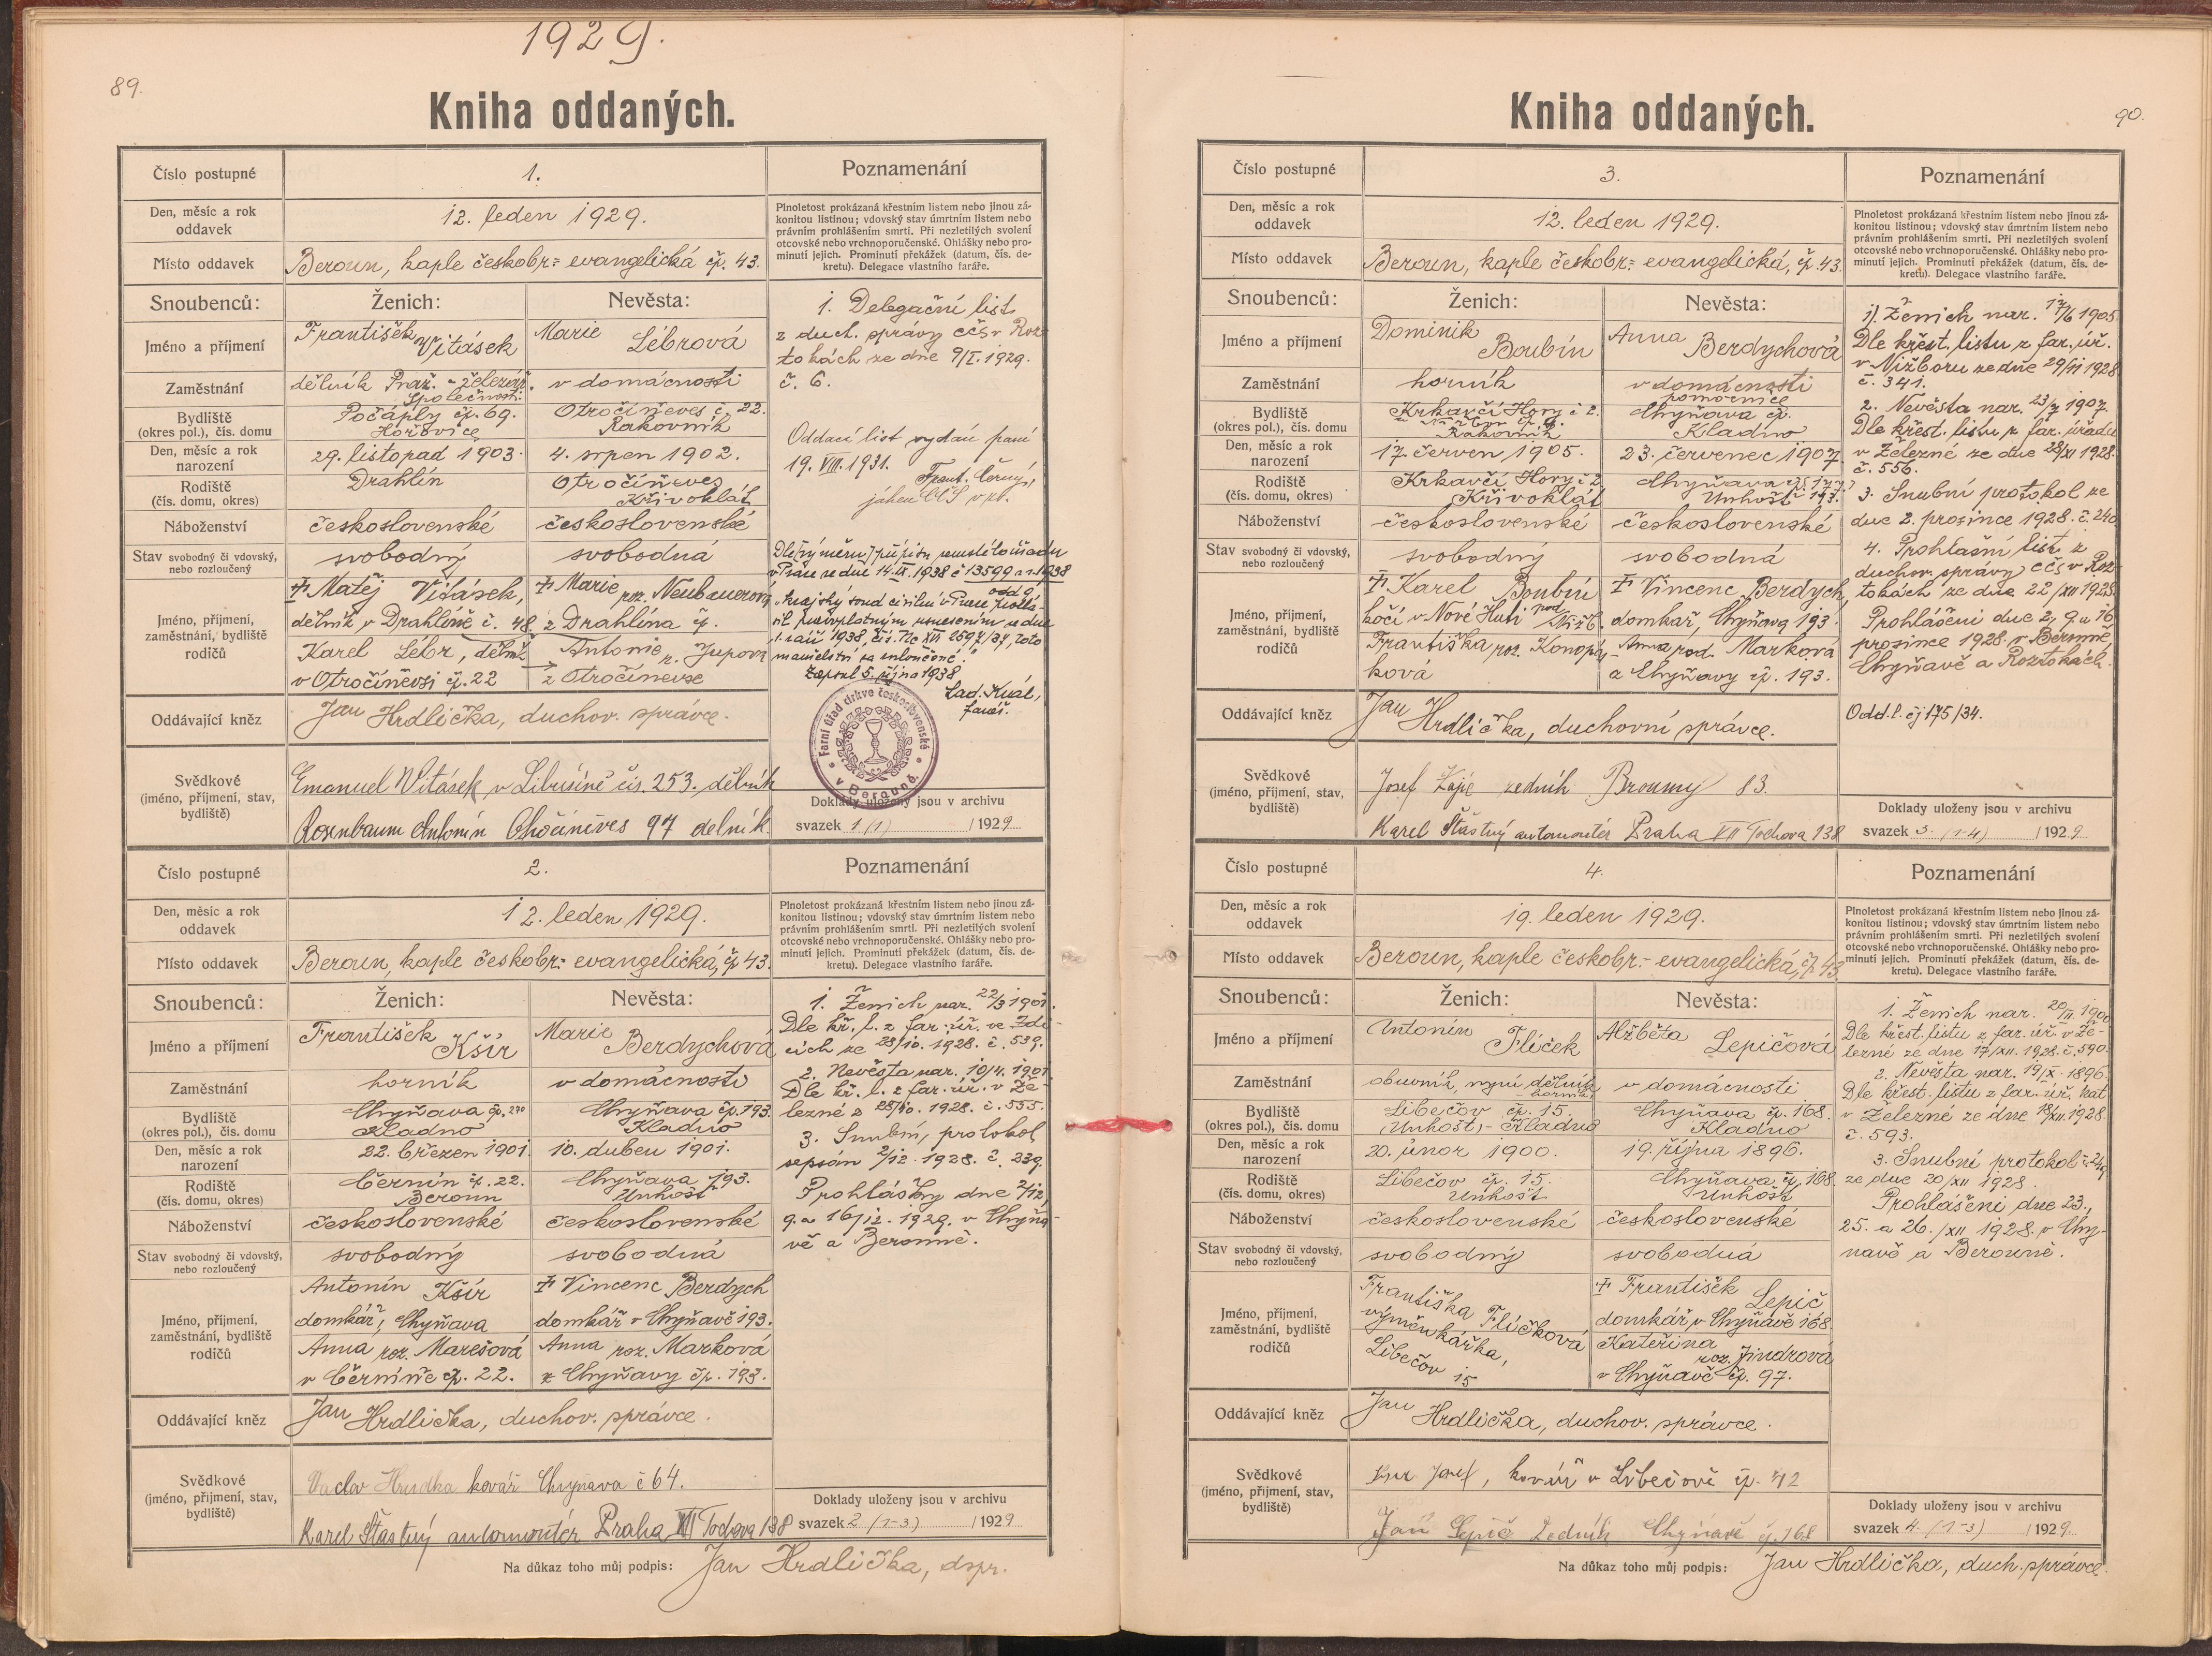 1929.
89.
Kniha oddaných.
Číslo postupné
1.
Poznamenání
Den, měsíc a rok
oddavek
12. leden 1929.
Plnoletost prokázaná křestním listem nebo jinou zá-
konitou listinou; vdovský stav úmrtním listem nebo
právním prohlášením smrti. Při nezletilých svolení
otcovské nebo vrchnoporučenské. Ohlášky nebo pro-
minutí jejich. Prominutí překážek (datum, čís. de-
kretu). Delegace vlastního faráře.
Místo oddavek
Beroun, kaple českobr.= evangelická čp. 43.
Snoubenců:
Ženich:
Nevěsta:
Jméno a příjmení
František Vitásek
Marie Lébrová
Zaměstnání
dělník Praž. - železář. Společnosti
v domácnosti
Bydliště
(okres pol.), čís. domu
Počáply čp. 69.
Hořovice
Otročíněves č. 22.
Rakovník
Den, měsíc a rok
narození
29. listopad 1903.
4. srpen 1902.
Rodiště
(čís. domu, okres)
Drahlín
Otročíněves
Křivoklát
Náboženství
československé
československé
Stav svobodný či vdovský,
nebo rozloučený
svobodný
svobodná
Jméno, příjmení,
zaměstnání, bydliště
rodičů
Matěj Vitásek,
dělník v Drahlíně č. 48.
Marie roz. Neubauerova
z Drahlína č.
Karel Lébr, dělník
v Otročíněvsi čp. 22
Antonie r. Jupova
z Otročíněvse
Oddávající kněz
Jan Hrdlička, duchov. správce.
Svědkové
(jméno, příjmení, stav,
bydliště)
Emanuel Witásek v Libušíně čis. 253. dělník
Rosenbaum Antonín Othočiněves 97 delník.
1. Delegační list
z duch. správy cčs v Roz
tokách ze dne 9/I. 1929.
č. 6.
Oddací list vydán paní
19. VIII. 1931.
Frant. Černý,
jáhen CČS
v Praze ze dne 14.IX.1938 č 13599 a r. 1938
"krajský soud civilní v Praze,
manželství za
Zapsal 5. října 1938
Lad. Král,
farář.
Farní úřad církve československé
v Berouně.
Doklady uloženy jsou v archivu
svazek 1 (1) / 1929
Číslo postupné
2.
Poznamenání
Den, měsíc a rok
oddavek
12. leden 1929.
Plnoletost prokázaná křestním listem nebo jinou zá-
konitou listinou; vdovský stav úmrtním listem nebo
právním prohlášením smrti. Při nezletilých svolení
otcovské nebo vrchnoporučenské. Ohlášky nebo pro-
minutí jejich. Prominutí překážek (datum, čís. de-
kretu). Delegace vlastního faráře.
Místo oddavek
Beroun, kaple českobr.= evangelická, čp 43.
Snoubenců:
Ženich:
Nevěsta:
Jméno a příjmení
František Kšír
Marie Berdychová
Zaměstnání
horník
v domácnosti
Bydliště
(okres pol.), čís. domu
Chyňava čp. 270
Kladno
Chyňava čp. 193.
Kladno
Den, měsíc a rok
narození
22. březen 1901.
10. duben 1901.
Rodiště
(čís. domu, okres)
Černín čp. 22.
Beroun
Chyňava 193.
Unhošť
Náboženství
československé
československé
Stav svobodný či vdovský,
nebo rozloučený
svobodný
svobodná
Jméno, příjmení,
zaměstnání, bydliště
rodičů
Antonín Kšír
domkář, Chyňava
Vincenc Berdych
domkář v Chyňavě 193.
Anna roz. Marešová
v Černíně čp. 22.
Anna roz. Marková
z Chyňavy čp. 193.
Oddávající kněz
Jan Hrdlička, duchov. správce.
Svědkové
(jméno, příjmení, stav,
bydliště)
Vaclav Hrudka kovář Chyňava č 64.
Karel Šťastný automontér Praha VII Tochova 138
1. Ženich nar. 22/3 1901.
Dle kř. l. z far. úř. ve Zdi-
cích ze 23/10. 1928. č. 539.
2. Nevěsta nar. 10/4. 1901.
Dle kř. l. z far. úř. v Že-
lezné z 25/10. 1928. č. 555.
3. Snubní protokol
sepsán 2/12 1928. č. 239.
Prohlášky dne 2/12,
9. a 16/12. 1929. v Chyňa-
vě a Berouně.
Doklady uloženy jsou v archivu
svazek 2 (1-3) / 1929
Na důkaz toho můj podpis: Jan Hrdlička, dspr.
90.
Kniha oddaných.
Číslo postupné
3.
Poznamenání
Den, měsíc a rok
oddavek
12. leden 1929.
Plnoletost prokázaná křestním listem nebo jinou zá-
konitou listinou; vdovský stav úmrtním listem nebo
právním prohlášením smrti. Při nezletilých svolení
otcovské nebo vrchnoporučenské. Ohlášky nebo pro-
minutí jejich. Prominutí překážek (datum, čís. de-
kretu). Delegace vlastního faráře.
Místo oddavek
Beroun, kaple českobr.= evangelická, čp. 43.
Snoubenců:
Ženich:
Nevěsta:
Jméno a příjmení
Dominik Boubín
Anna Berdychová
Zaměstnání
horník
v domácnosti
pomocnice
Bydliště
(okres pol.), čís. domu
Krkavčí Hory č 2.
Rakovník
Chyňava čp.
Kladno
Den, měsíc a rok
narození
17. červen 1905.
23. červenec 1907.
Rodiště
(čís. domu, okres)
Krkavčí Hory č 2.
Křivoklát
Chyňava
Unhošť 193.
Náboženství
československé
československé
Stav svobodný či vdovský,
nebo rozloučený
svobodný
svobodná
Jméno, příjmení,
zaměstnání, bydliště
rodičů
Karel Boubín
kočí v Nové Huti pod Nižb.
Vincenc Berdych,
domkář, Chyňava 193.
Františka roz. Konopá-
ková
Anna rod. Marková
z Chyňavy čp. 193.
Oddávající kněz
Jan Hrdlička, duchovní správce.
Svědkové
(jméno, příjmení, stav,
bydliště)
Josef Zajíc zedník Broumy 83.
Karel Šťastný automontér Praha VII Tochova 138
1). Ženich nar. 17/6 1905
Dle křest. listu z far. úř.
v Nižboru ze dne 29/11 1928
č. 341.
2. Nevěsta nar. 23/7 1907.
Dle křest. listu z far. úřadu
v Železné ze dne 28/XI 1928.
č. 556.
3. Snubní protokol ze
dne 2. prosince 1928. č. 240
4. Prohlašní list z
duchov. správy cčs v Roz-
tokách ze dne 22/XII 1928.
Prohlášeni dne 2, 9. a 16
prosince 1928. v Berouně,
Chyňavě a Roztokách.
Odd. l. čj 175/34.
Doklady uloženy jsou v archivu
svazek 3. (1-4) / 1929
Číslo postupné
4.
Poznamenání
Den, měsíc a rok
oddavek
19. leden 1929.
Plnoletost prokázaná křestním listem nebo jinou zá-
konitou listinou; vdovský stav úmrtním listem nebo
právním prohlášením smrti. Při nezletilých svolení
otcovské nebo vrchnoporučenské. Ohlášky nebo pro-
minutí jejich. Prominutí překážek (datum, čís. de-
kretu). Delegace vlastního faráře.
Místo oddavek
Beroun, kaple českobr.- evangelická, čp. 43
Snoubenců:
Ženich:
Nevěsta:
Jméno a příjmení
Antonín Flíček
Alžběta Lepičová
Zaměstnání
obuvník, nyní dělník
horník
v domácnosti
Bydliště
(okres pol.), čís. domu
Libečov čp. 15.
(Unhošť) - Kladno
Chyňava čp. 168.
Kladno
Den, měsíc a rok
narození
20. únor 1900.
19. října 1896.
Rodiště
(čís. domu, okres)
Libečov čp. 15.
Unhošť
Chyňava čp. 168.
Unhošť
Náboženství
československé
československé
Stav svobodný či vdovský,
nebo rozloučený
svobodný
svobodná
Jméno, příjmení,
zaměstnání, bydliště
rodičů
Františka Flíčková
výměnkářka,
Libečov 15
František Lepič
domkář v Chyňavě 168
Kateřina roz. Jindrová
v Chyňavě čp. 97.
Oddávající kněz
Jan Hrdlička, duchov. správce.
Svědkové
(jméno, příjmení, stav,
bydliště)
Josef, kovář v Libečově čp. 42
Jan Lepič Zedník Chyňavě č. 168
1. Ženich nar. 20/II. 1900
Dle křest. listu z far. úř. v Že-
lezné ze dne 17/XII. 1928. č. 590.
2. Nevěsta nar. 19/X. 1896.
Dle křest. listu z far. úř. kat
v Železné ze dne 18/XII. 1928.
č. 593.
3. Snubní protokol č. 249
ze dne 20/XII 1928.
Prohlášeni dne 23.,
25. a 26./XII 1928. v Chy-
navě a Berouně.
Doklady uloženy jsou v archivu
svazek 4. (1-3) / 1929
Na důkaz toho můj podpis: Jan Hrdlička, duch. správce